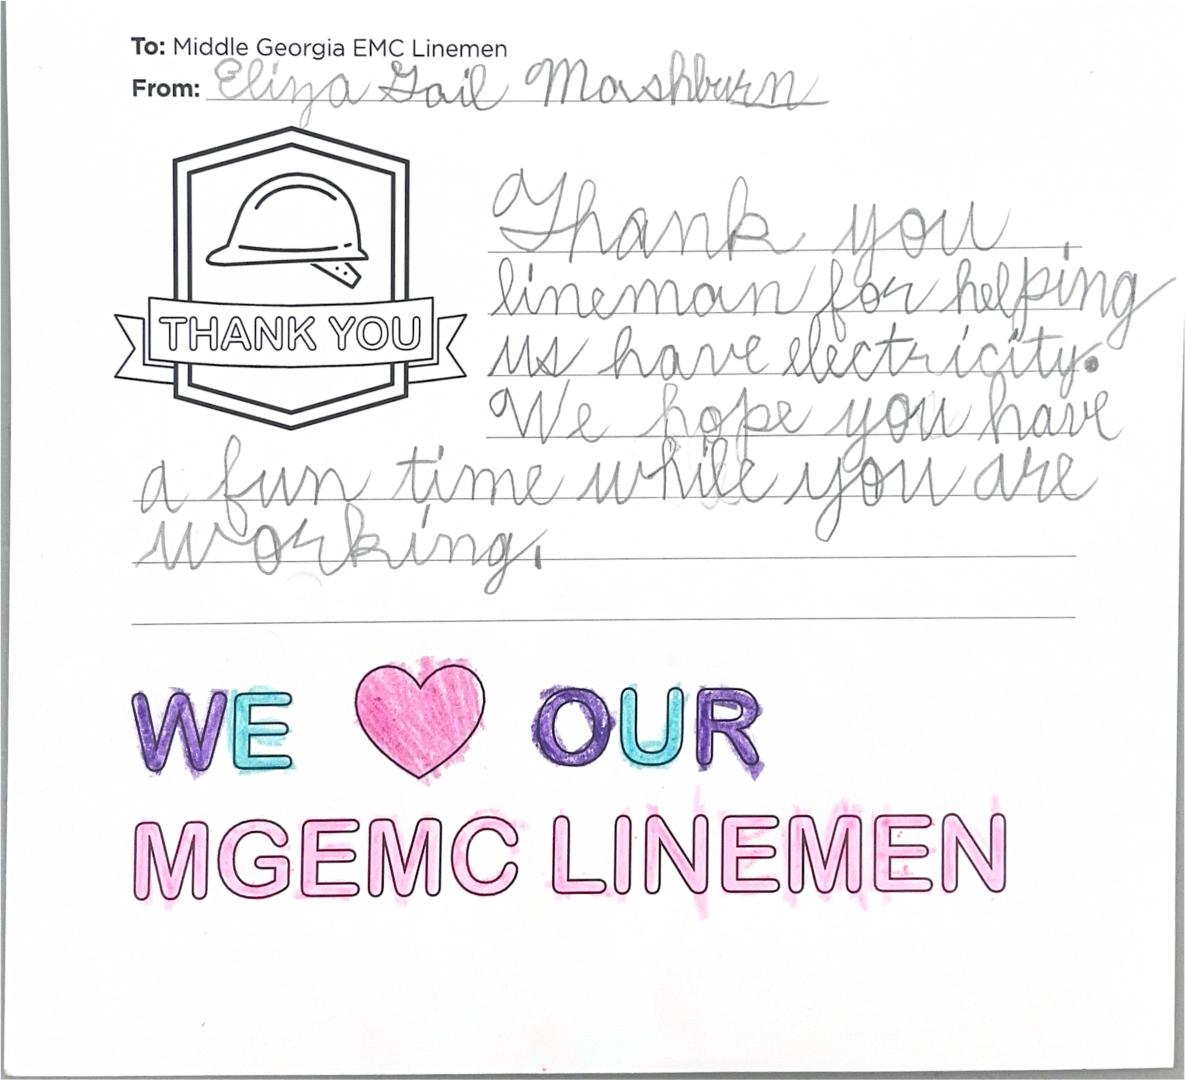 To: Middle Georgia EMC Linemen
From: Eliza Gail Mashburn
THANK YOU
Thank you
lineman for helping
us have electricity.
We hope you have
a fun time while you are
working.
WE OUR
MGEMC LINEMEN